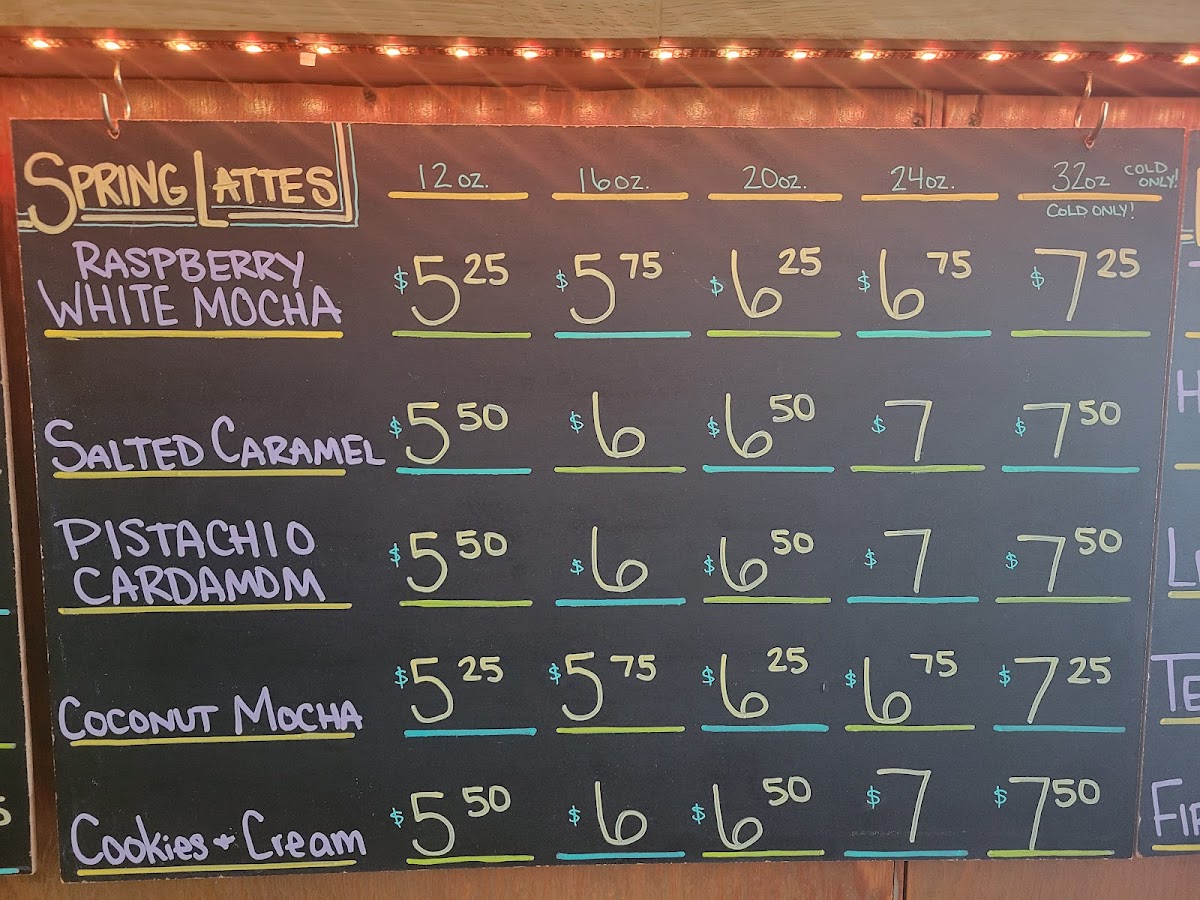 SPRING LATTES 12 oz. 16 oz. 20oz. 24oz. 32oz COLD ONLY!
COLD ONLY!
RASPBERRY
WHITE MOCHA $5 25 $5 75 $6 25 $6 75 $7 25
SALTED CARAMEL $5 50 $6 $6 50 $7 $7 50
PISTACHIO
CARDAMOM $5 50 $6 $6 50 $7 $7 50
COCONUT MOCHA $5 25 $5 75 $6 25 $6 75 $7 25
Cookies + Cream $5 50 $6 $6 50 $7 $7 50